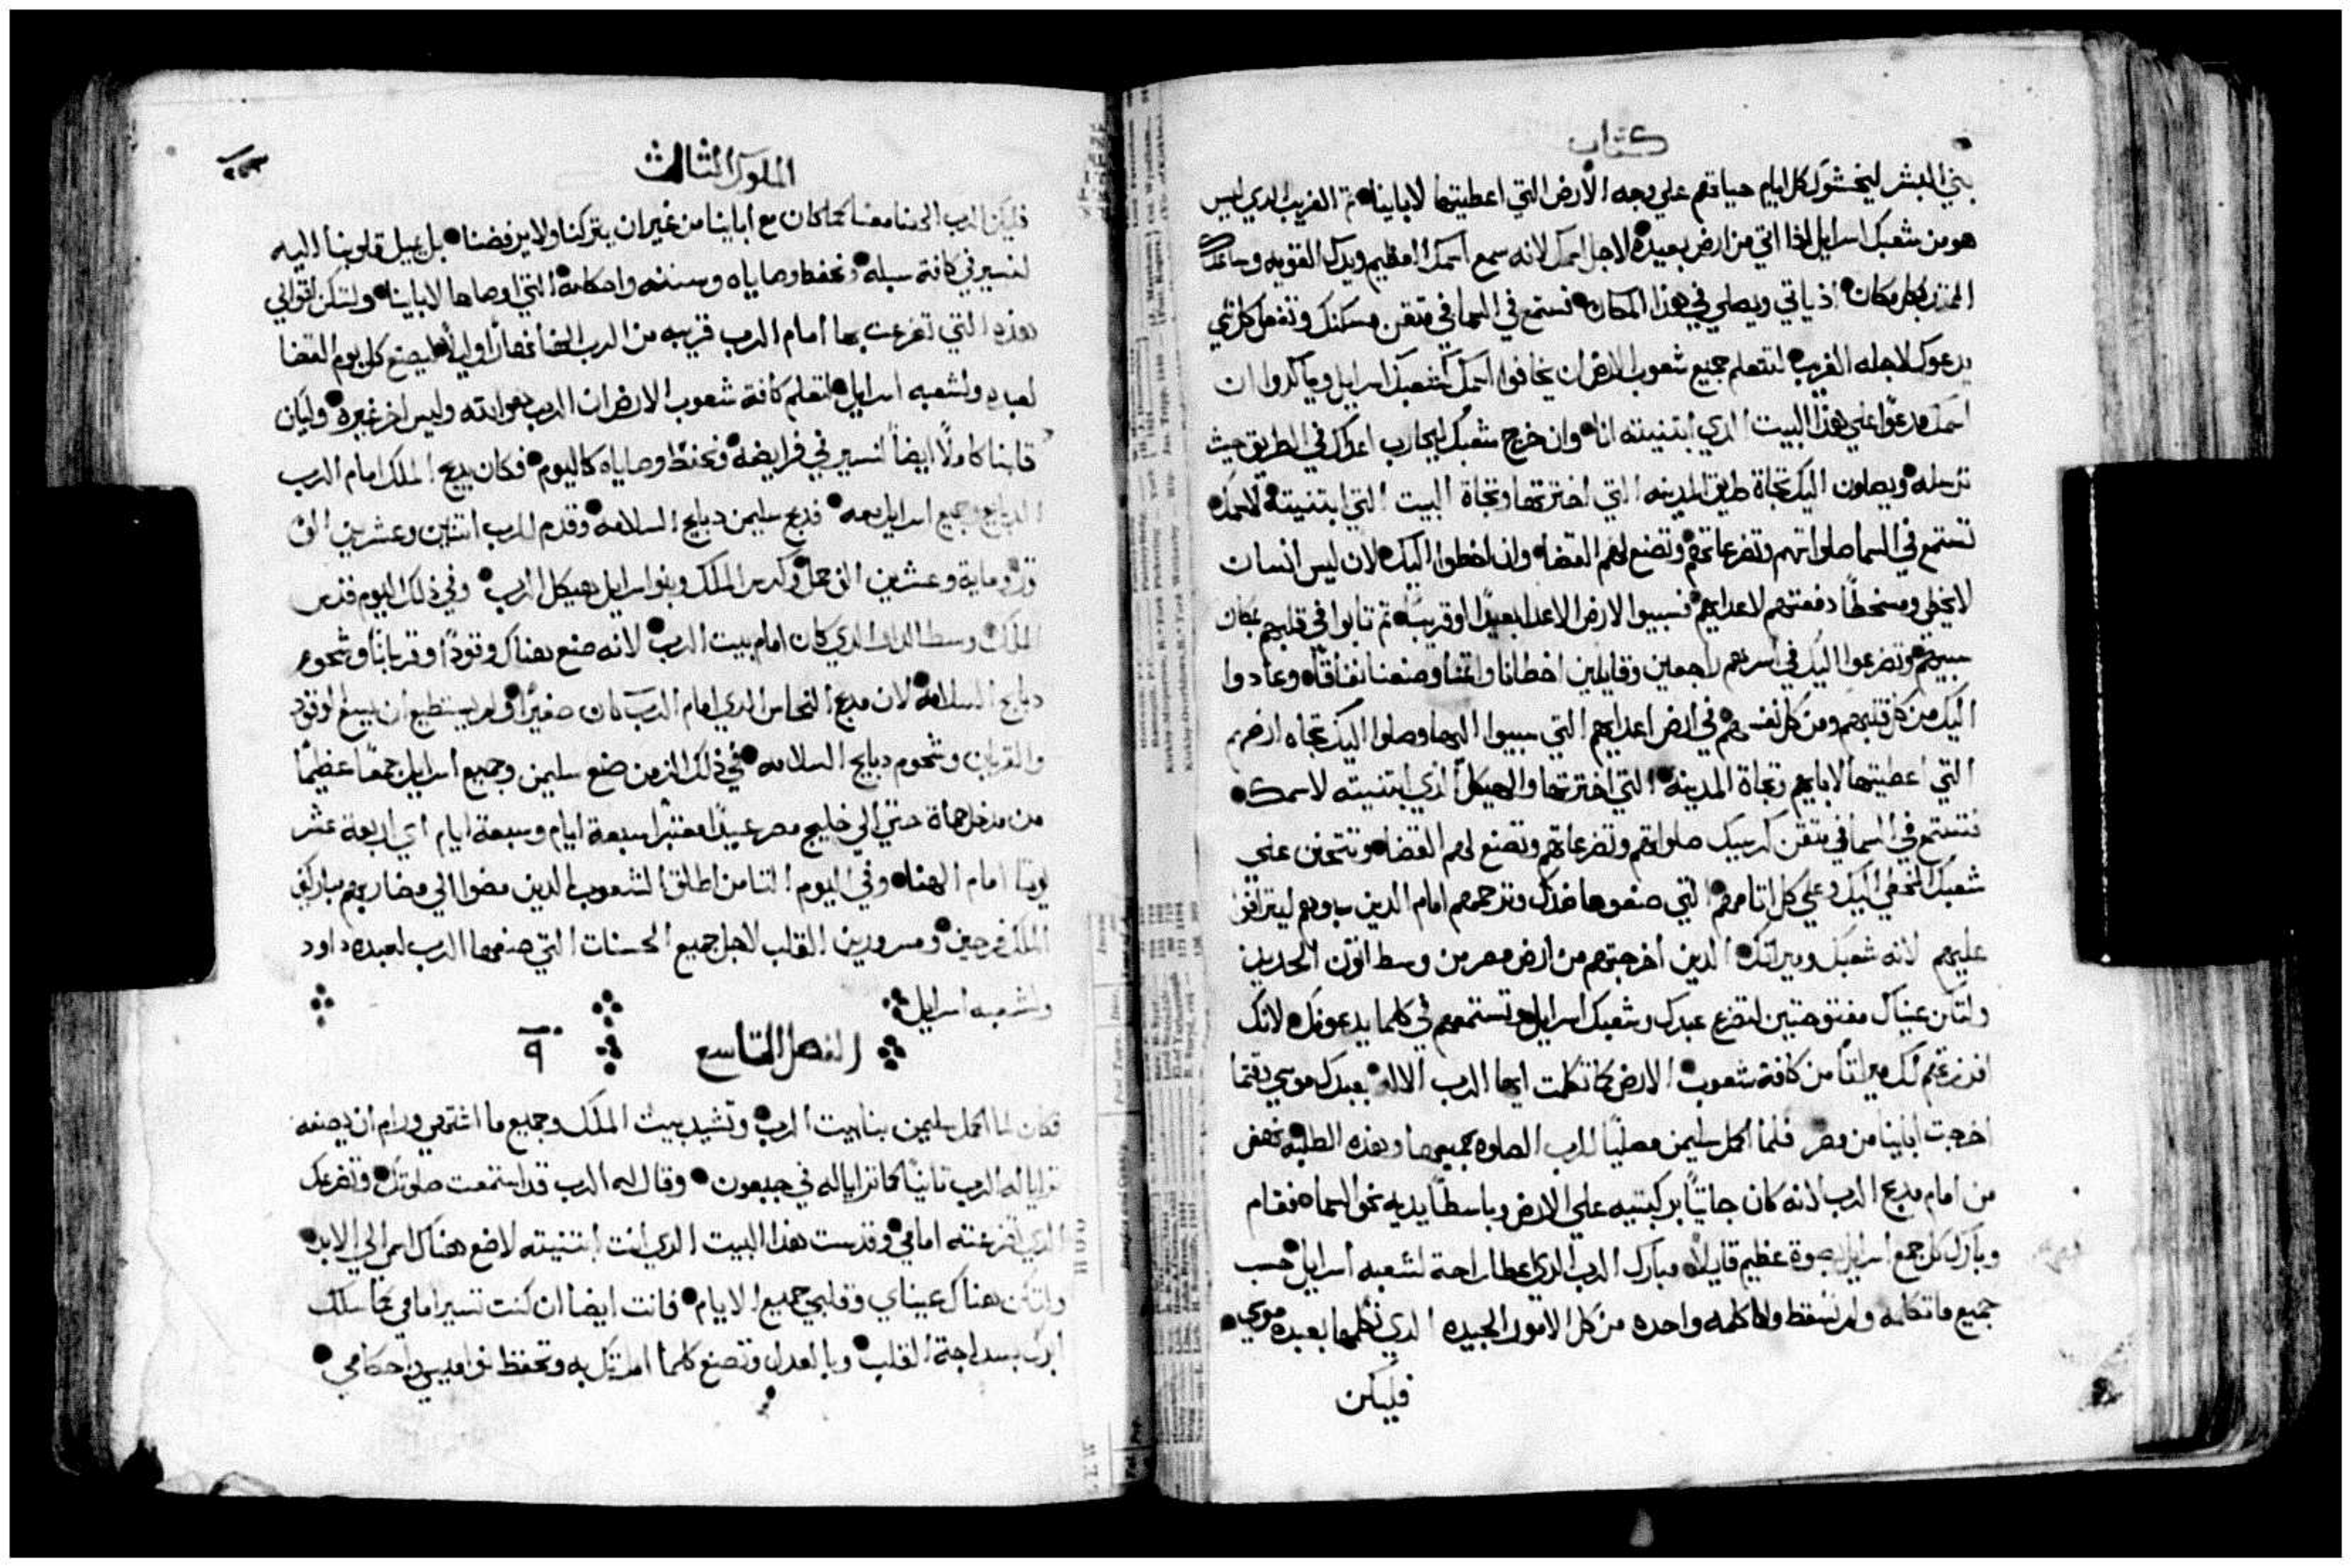 كتاب
بني البشر ليخشوك كل ايام حياتهم علي وجه الارض التي اعطيتها لاباينا ثم الغريب الدي ليس
هو من شعبك اسرايل اذا اتي من ارض بعيده لاجل اسمك لانه سمع اسمك العظيم ويدك القويه وساعدك
الممتد بكل مكان اذ ياتي ويصلي في هذا المكان فستمع في السما في متقن مسكنك وتفعل كل شي
يدعوك لاجله الغريب لتتعلم جميع شعوب الارض ان يخافوا اسمك كشعبك اسرايل وياكدوا ان
اسمك مدعوا علي هذا البيت الدي ابتنيته انا وان خرج شعبك ليحارب اعداك في الطريق حيث
ترسله ويصلون اليك تجاة طريق المدينه التي اخترتها وتجاة البيت التي ابتنيته لاسمك
تستمع في السما صلواتهم وتضرعاتهم وتصنع لهم القضا وان اخطوا اليك لان ليس انسان
لا يخطي ومسخطاً دفعتهم لاعدايهم فسبيوا لارض الاعدا بعيدًا او قريبًا ثم تابوا في قلبهم بمكان
سبيهم وتضرعوا اليك في اسرهم راجعين وقايلين اخطانا واثمنا وصنعنا نفاقاً وعادوا
اليك من كل قلبهم ومن كل نفسهم في ارض اعدايهم التي سبيوا اليها وصلوا اليك تجاه ارضهم
التي اعطيتها لابايهم وتجاة المدينه التي اخترتها والهيكل الذي ابتنيته لاسمك
فتستمع في السما في متقن كرسيك صلواتهم وتضرعاتهم وتصنع لهم القضا وتتحنن علي
شعبك المخطي اليك وعلي كل اثامهم التي صنعوها ضدك وترحمهم امام الدين سبوهم ليترافوا
عليهم لانه شعبك وميراثك الدين اخرجتهم من ارض مصر من وسط اتون الحديد
ولتكن عيناك مفتوحتين لتضرع عبدك وشعبك اسرايل وتستمعهم في كلما يدعونك لانك
افرزتهم لك ميراثاً من كافة شعوب الارض كما تكلمت ايها الرب الاله بعبدك موسي وقتما
اخرجت اباينا من مصر فلما اكمل سليمن مصلياً للرب الصلوه بجميعها وهذه الطلبه نهض
من امام مدبح الرب لانه كان جاثياً بركبتيه علي الارض وباسطاً يديه نحو السما فقام
وبارك كل جمع اسرايل بصوة عظيم قايلاً مبارك الرب الدي اعطا راحة لشعبه اسرايل حسب
جميع ما تكلمه ولم تسقط ولا كلمه واحده من كل الامور الجيده الدي تكلمها بعبده موسي
فليكن
الملوك الثالث
فليكن الرب الهنا معنا كما كان مع اباينا من غير ان يتركنا ولا يرفضنا بل يميل قلوبنا اليه
لنسير في كافة سبله ونحفظ وصاياه وسننه واحكامه التي اوصاها لاباينا ولتكن اقوالي
هذه التي تضرعت بها امام الرب قريبه من الرب الهنا نهارًا وليلاً ليصنع كل يوم القضا
لعبده ولشعبه اسرايل لتعلم كافة شعوب الارض ان الرب هو الله وليس اخر غيره وليكن
قلبنا كاملاً ايضاً لنسير في فرايضه ونحفظ وصاياه كاليوم فكان يدبح الملك امام الرب
الدبايح وجميع اسرايل معه فدبح سليمن دبايح السلامه وقدم للرب اثنين وعشرين الف
ثور وماية وعشرين الف حمل وكرس الملك وبنوا اسرايل هيكل الرب وفي ذلك اليوم قدس
الملك وسط الدار الدي كان امام بيت الرب لانه صنع هناك وقودًا وقربانًا وشحوم
دبايح السلامه لان مدبح النحاس الدي امام الرب كان صغيرًا ولم يستطيع ان يسع الوقود
والقربان وشحوم دبايح السلامه في ذلك الزمن صنع سليمن وجميع اسرايل جمعاً عظيمًا
من مدخل حماة حتي الي خليج مصر عيدًا معتبرا سبعة ايام وسبعة ايام اي اربعة عشر
يومًا امام الهنا وفي اليوم الثامن اطلق الشعوب الدين مضوا الي مضاربهم مباركين
الملك فرحين ومسرورين القلب لاجل جميع الحسنات التي صنعها الرب لعبده داود
ولشعبه اسرايل
الفصل التاسع ٩
فكان لما اكمل سليمن بنا بيت الرب وتشيد بيت الملك وجميع ما اشتهي ورام ان يصنعه
ترايا له الرب ثانيًا كما ترايا له في جبعون وقال له الرب قد استمعت صلوتك وتضرعك
الدي تضرعته امامي وقدست هذا البيت الدي انت ابتنيته لاضع هناك اسمي الي الابد
ولتكن هناك عيناي وقلبي جميع الايام فانت ايضا ان كنت تسير امامي كما سلك
ابوك بسداجة القلب وبالعدل وتصنع كلما امرتك به وتحفظ نواميسي واحكامي